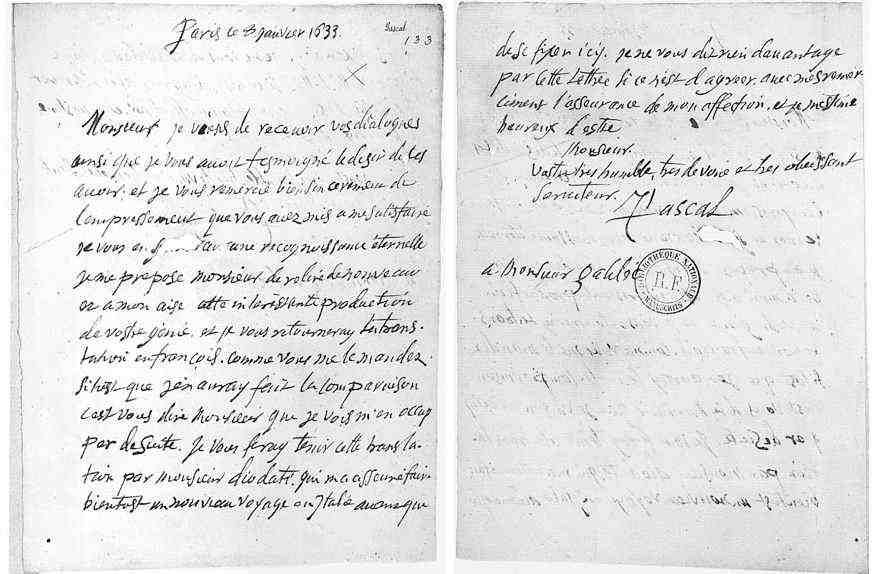 Paris ce 8 janvier 1633.
Pascal
133
Monsieur je viens de recevoir vos dialogues
ainsi que je vous avois tesmoigné le desir de les
avoir. et je vous remercie bien sincerement de
l'empressement que vous avez mis a me satisfaire
je vous en une recognoissance éternelle
je me propose monsieur de relire de nouveau
et a mon aise cette interessante production
de vostre génie. et je vous retourneray la trans-
lation en françois. comme vous me le mandez.
sitost que j'en auray fait la comparaison
c'est vous dire Monsieur que je vais m'en occup
per de suite. Je vous feray tenir cette transla-
tion par monsieur diodati. qui m'a asseuré faire
bientost un nouveau voyage en Italie avant que
de se fixer icy. je ne vous diz rien davantage
par cette lettre si ce n'est d'agreer avec mes remer-
ciment l'asseurance de mon affection. et je m'estime
heureux d'estre.
Monsieur.
Vostre tres humble, tres devoué et tres obeissant
Serviteur.
Pascal
a Monsieur galilée
BIBLIOTHÈQUE NATIONALE
R.F.
MANUSCRITS